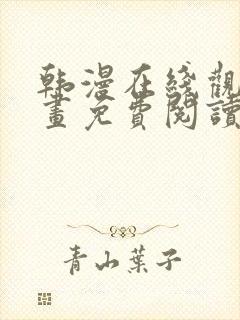 韩漫在线觀
畫免費閱讀
青山葉子